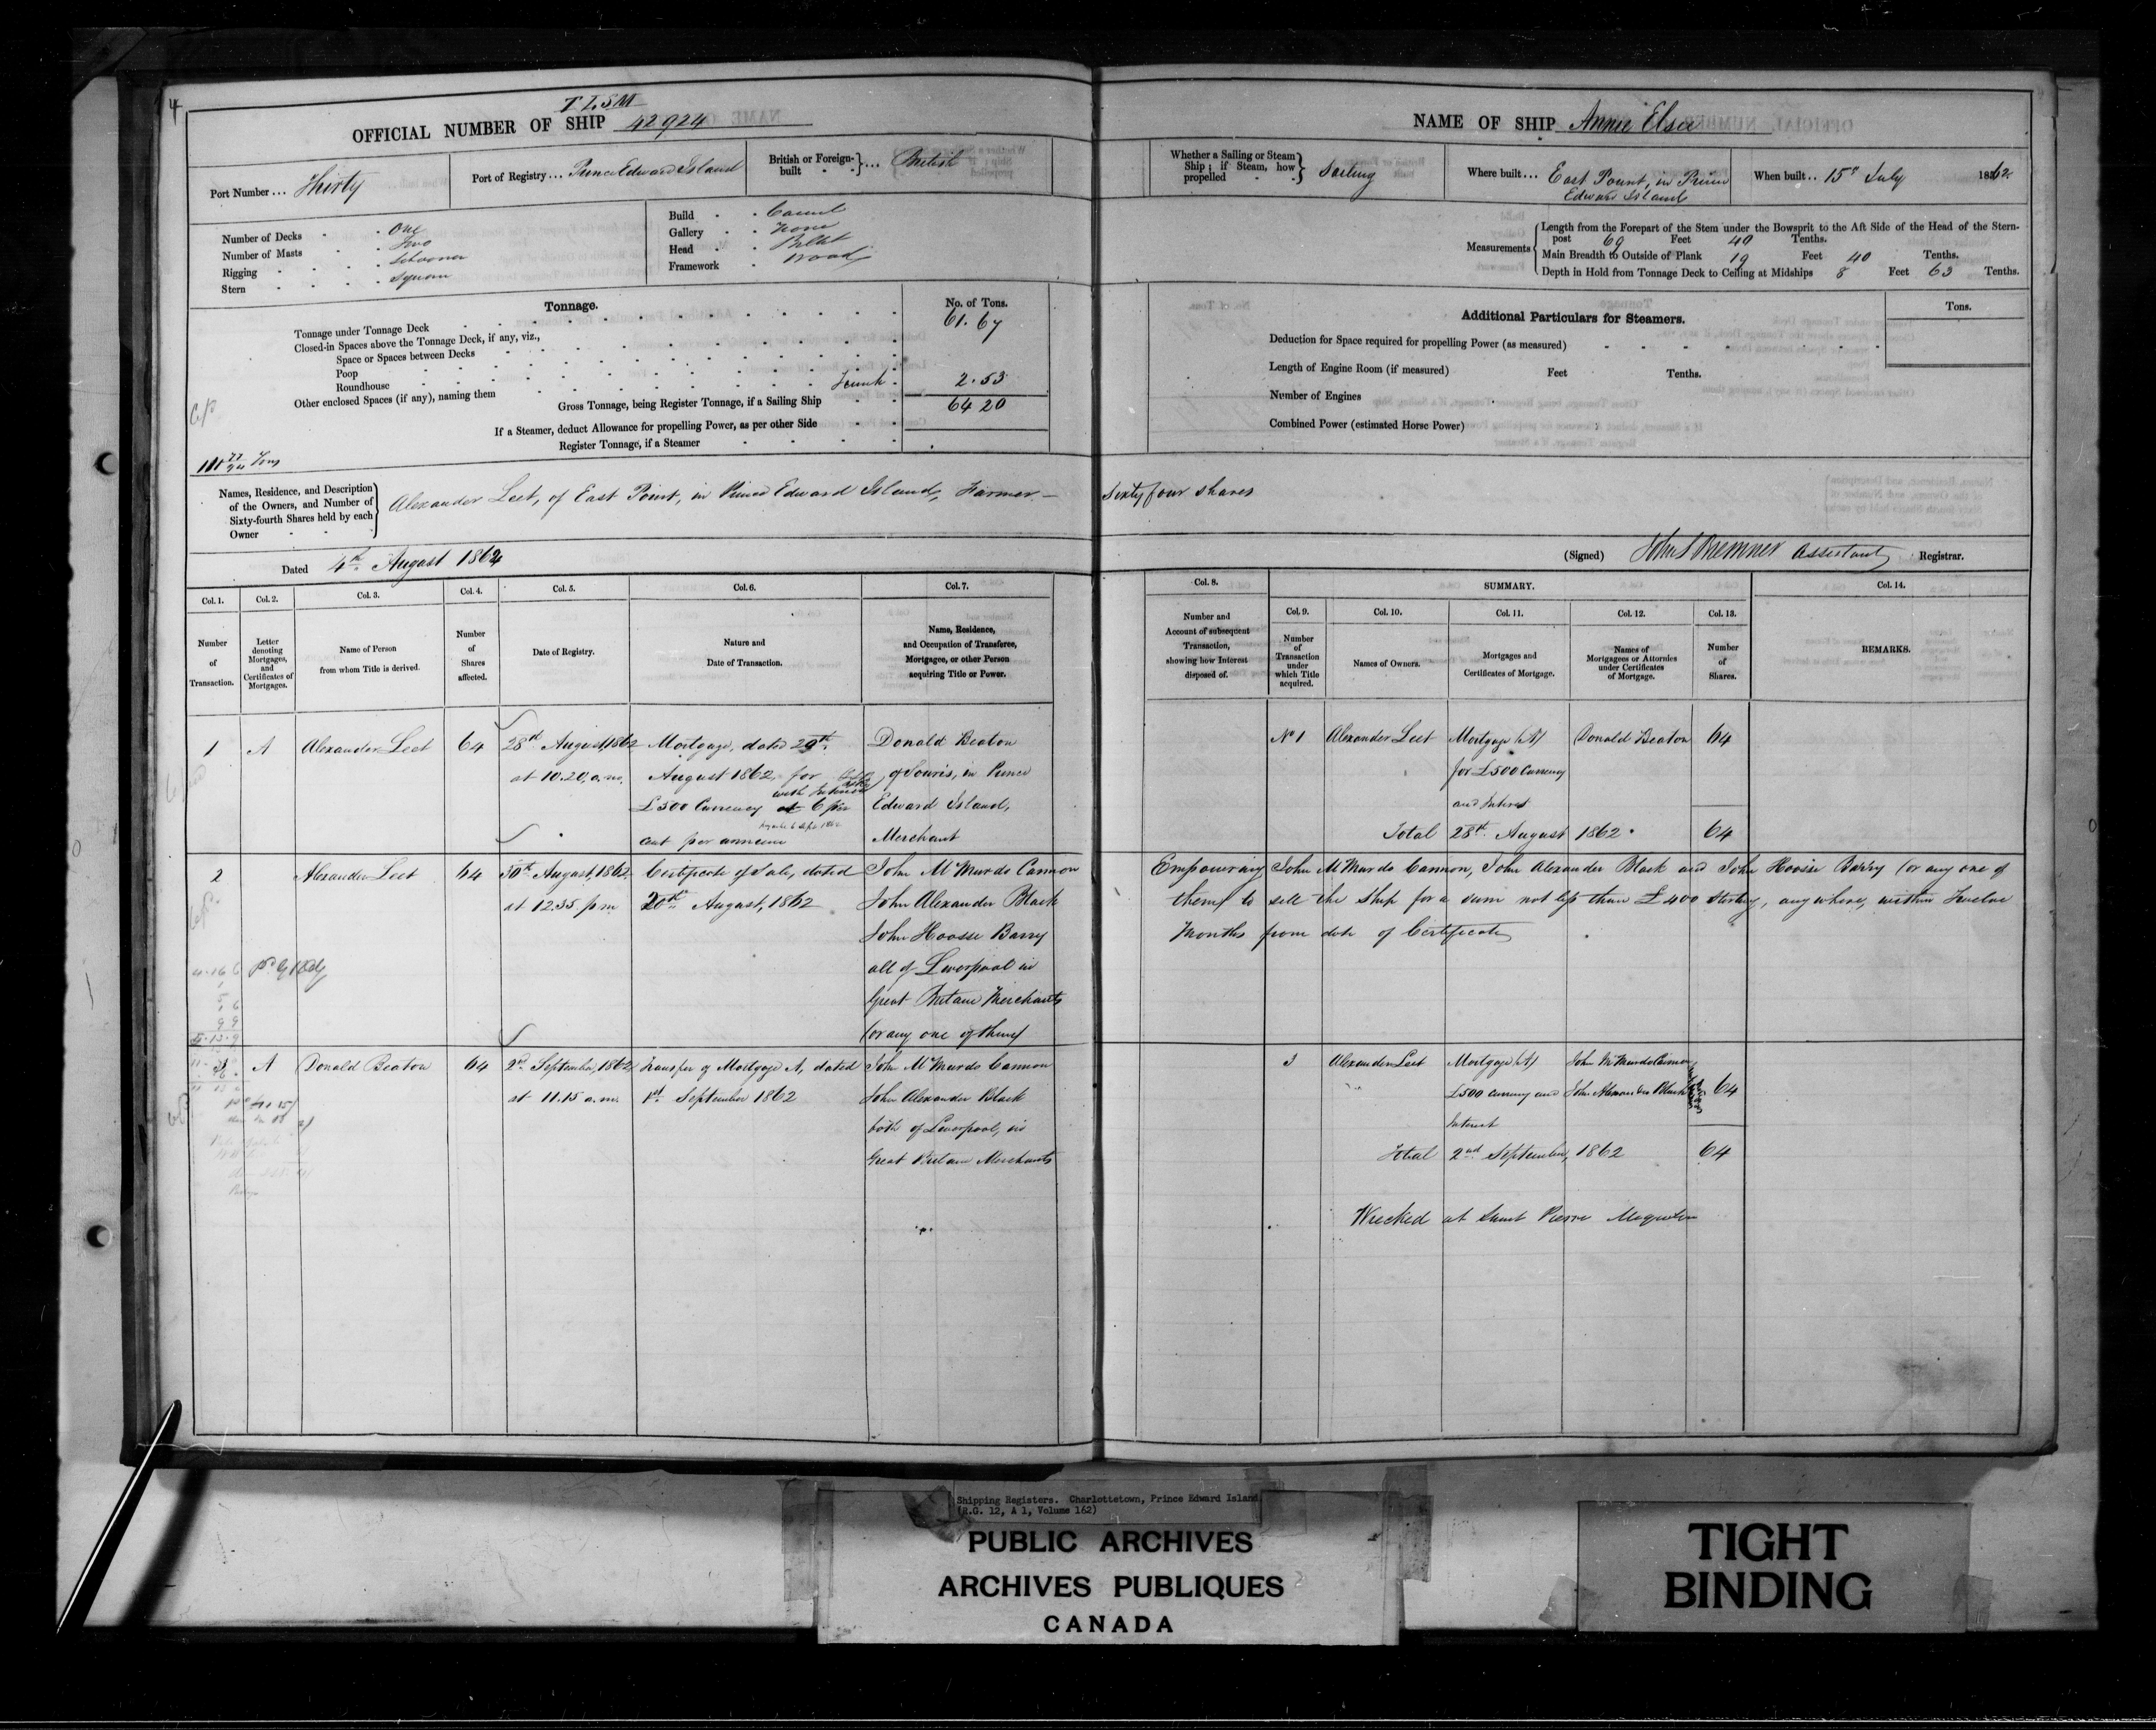 4
T L S M
OFFICIAL NUMBER OF SHIP 42924
Port Number ... Thirty
Port of Registry ... Prince Edward Island
British or Foreign-built ... British
Number of Decks One
Number of Masts Two
Rigging Schooner
Stern Square
Build Carvel
Gallery None
Head Billet
Framework Wood
Tonnage.
No. of Tons.
Tonnage under Tonnage Deck 61.67
Closed-in Spaces above the Tonnage Deck, if any, viz.,
Space or Spaces between Decks
Poop
Roundhouse
Other enclosed Spaces (if any), naming them Trunk 2.53
Gross Tonnage, being Register Tonnage, if a Sailing Ship 64 20
If a Steamer, deduct Allowance for propelling Power, as per other Side
Register Tonnage, if a Steamer
Names, Residence, and Description
of the Owners, and Number of
Sixty-fourth Shares held by each
Owner
Alexander Leet, of East Point, in Prince Edward Island, Farmer —
Dated 4th August 1862
Col. 1. Col. 2. Col. 3. Col. 4. Col. 5. Col. 6. Col. 7.
Number of Transaction.
Letter denoting Mortgages, and Certificates of Mortgages.
Name of Person from whom Title is derived.
Number of Shares affected.
Date of Registry.
Nature and Date of Transaction.
Name, Residence, and Occupation of Transferee, Mortgagee, or other Person acquiring Title or Power.
1 A Alexander Leet 64 28th August 1862 Mortgage, dated 29th Donald Beaton
at 10.20 a.m. August 1862 for of Souris, in Prince
£500 Currency with Interest at 6 per Edward Island,
cent per annum Merchant
2 Alexander Leet 64 30th August, 1862 Certificate of Sale, dated John McMurdo Cannon
at 12.35 p m August, 1862 John Alexander Black
John Hoosse Barry
all of Liverpool in
Great Britain Merchants
(or any one of them)
3 A Donald Beaton 64 2nd September, 1862 Transfer of Mortgage A, dated John McMurdo Cannon
at 11.15 a.m. 1st September 1862 John Alexander Black
both of Liverpool, in
Great Britain Merchants
NAME OF SHIP Annie Elsie
Whether a Sailing or Steam Ship; if Steam, how propelled Sailing
Where built ... East Point, in Prince
Edward Island
When built .. 15th July 1862
Measurements
Length from the Forepart of the Stem under the Bowsprit to the Aft Side of the Head of the Stern-
post 69 Feet 40 Tenths.
Main Breadth to Outside of Plank 19 Feet 40 Tenths.
Depth in Hold from Tonnage Deck to Ceiling at Midships 8 Feet 63 Tenths.
Additional Particulars for Steamers.
Tons.
Deduction for Space required for propelling Power (as measured)
Length of Engine Room (if measured) Feet Tenths.
Number of Engines
Combined Power (estimated Horse Power)
Sixty four shares
(Signed) Assistant Registrar.
Col. 8. SUMMARY. Col. 14.
Col. 9. Col. 10. Col. 11. Col. 12. Col. 13.
Number and Account of subsequent Transaction, showing how Interest disposed of.
Number of Transaction under which Title acquired.
Names of Owners.
Mortgages and Certificates of Mortgage.
Names of Mortgagees or Attornies under Certificates of Mortgage.
Number of Shares.
REMARKS.
No 1 Alexander Leet Mortgage (A) Donald Beaton 64
for £500 Currency
and Interest
Total 28th August 1862 64
Empowering John McMurdo Cannon, John Alexander Black and John Hoosse Barry (or any one of
them) to sell the Ship for a sum not less than £400 Sterling, anywhere, within Twelve
Months from date of Certificate
3 Alexander Leet Mortgage (A) John McMurdo Cannon
£500 Currency and John Alexander Black 64
Interest
Total 2nd September, 1862 64
Wrecked at Saint Pierre Miquelon
Shipping Registers. Charlottetown, Prince Edward Island
(R.G. 12, A 1, Volume 162)
PUBLIC ARCHIVES
ARCHIVES PUBLIQUES
CANADA
TIGHT
BINDING